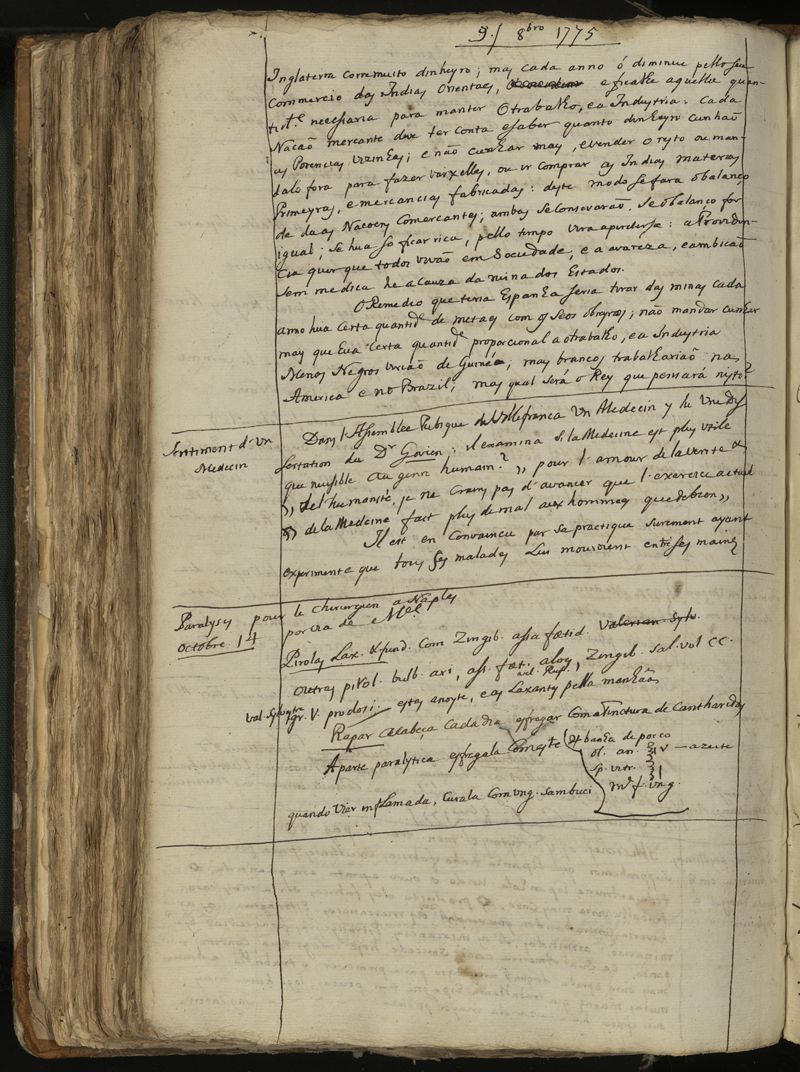 9./ 8bro 1775
Inglaterra corre muito dinheyro; mas cada anno ó diminue pello seu
Commercio das Indias Orientaes, a ficalhe aquella quan-
tid.e necessaria para manter Otrabalho, ea Industria: Cada
Nacaõ mercante deve ter conta esaber quanto dinheyro cunhaõ
as Potencias vizinhas; e naõ cunhar mays, evender o resto ou man-
dalo fora para fazer vaxellas, ou ir comprar as Indias materias
Primeyras, emercancias fabricadas: deste modo se fara obalanço
de duas Nacoens Comercantes; ambas se consevaraõ, se obalanço for
igual; se hua só ficar rica, pello tempo vira aperderse: a Providen-
cia quer que todos vivaõ em Sociedade, e a avareza, eambicaõ
sem medida he a Cauza da ruina dos Estados.
O Remedio que teria Espanha seria tirar das minas cada
anno hua certa quantid.e de metaes com q seos obreyros; não mandar cunhar
mays que hua certa quantid.e proporcional aotrabalho, ea Industria
Menos Negros viriaõ de Guinéa; mays brancos trabalhariaõ na
America e no Brazil; mas qual será o Rey que pensará nisto?
Sentiment d'un
Medecin
Dans l'Assemblee Publique de Villefranca Un Medecin y lu une Dis
sertation du Dr Govien; il examina si la Medecine est plus utile
que nuisible au genre humain? ,, pour l'amour de la verité &
,, del'humanité, je ne crains pas d'avancer que l'exercice actuel
,, de la Medecine fait plus de mal aux hommes que de bien ,,
Il est en Convaincu par sa practique surement ayant
experimenté que tous ses malades lui mouroient entre ses mains
Paralysis pour le Chirurgien a Naples
octobre. 14 por via de
Pirolas Lax. Com Zingib. assa fœtid. Valerian Sylv.
outras pirol. bulb. ari, ass. fœt. aloes, Zengib. sal. vol CC.
Val. Sylvestr gr. V. pro dosi: estas anoyte, e as Laxants pella manhãã
Rapar Cabeça cada dia esfregar com a Tinctura de Cantharidas
A parte paralytica esfregala com este banha de porco
ol. an. ℥ v — azeite
sp. vitr. ℥ 1
m. f. ung.
quando vier inflamada, curala Com ung. sambuci